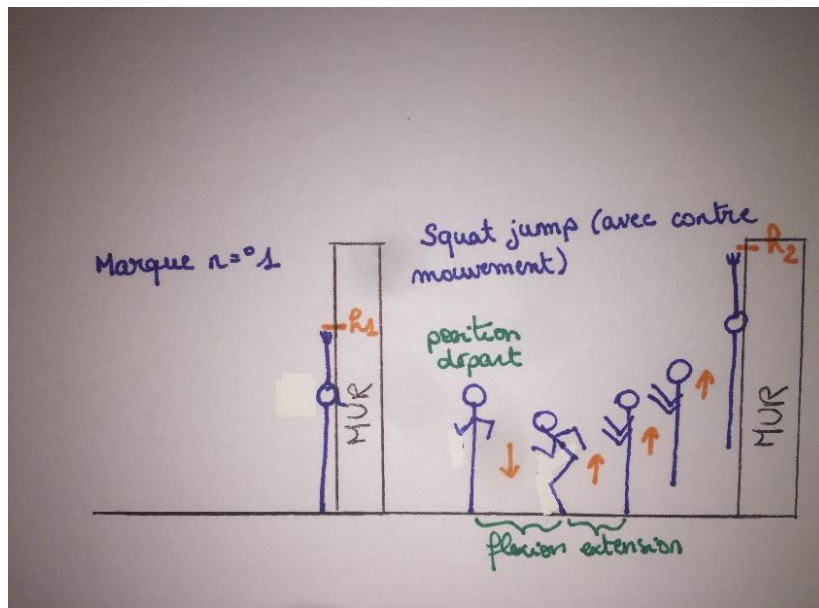 Marque n=°1
h1
MUR
Squat jump (avec contre
mouvement)
h2
MUR
position
départ
flexion extension